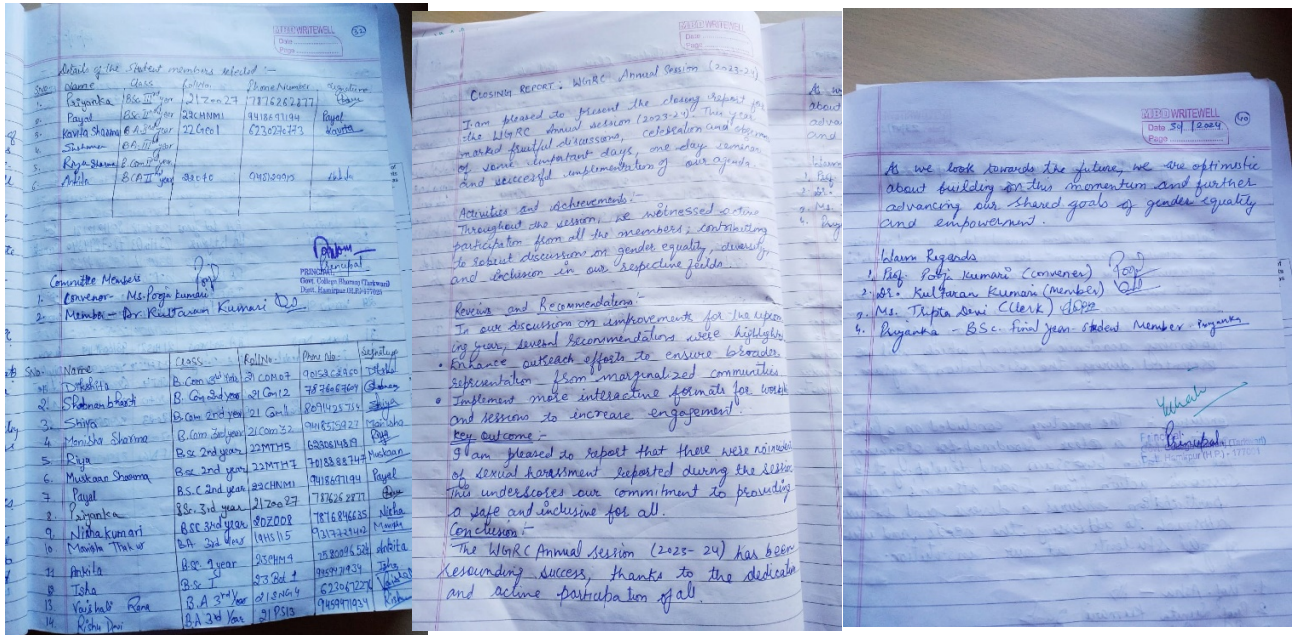 WRITEWELL
Date
Page
32
Details of the Student members selected :-
Sno. Name Class Phone Number
1. Priyanka BSc IIIrd year 21Zoo27 7876262877
2. Payal BSc IInd year 22CHNM1 9418697194 Payal
3. Kavita Sharma B.A 2nd year Kavita
4. BA III year
5. B.Com IInd year
6. Ankita BCA II year
Principal
PRINCIPAL
Govt. College
Distt. Hamirpur (H.P.)-177001
Committee Members
1. Convenor - Ms. Pooja Kumari
2. Member - Dr. Kultaran Kumari
Sno. Name Class Roll No. Phone No. Signature
Dikshita B.Com 3rd Year 21COM07
2. Shabnam bharti B.Com 2nd year 21Com12 7876067609
3. Shiya B.Com 2nd year 21Com11 Shiya
4 Manisha Sharma B.Com 3rd year 21Com32 Manisha
5 Riya B.Sc 2nd year 22MTH5 6230614819 Riya
6. Muskaan Sharma BSc 2nd year 22MTH7 7018888747 Muskaan
7 Payal B.S.C 2nd year 22CHNM1 9418697194 Payal
8. Priyanka BSc. 3rd year 21Zoo27 7876262877
9. Nisha kumari BSC 3rd year 20Z008 7876846635 Nisha
10. Manisha Thakur B.A 3rd Year 19HS115
11 Ankita BSC 1 year Ankita
Isha BSc I Isha
13 Vaishali Rana B.A 3rd Year 21ENG4
14. Rishu Devi B.A 3rd Year 21PS13 9459471934
WRITEWELL
Date
Page
CLOSING REPORT: WGRC Annual Session (2023-24)
I am pleased to present the closing report for
the WGRC Annual session (2023-24). This year
marked fruitful discussions, celebration and
of some important days, one day seminar
and successful implementation of our agenda.
Activities and Achievements:-
Throughout the session, we witnessed active
participation from all the members, contributing
to robust discussions on gender equality, diversity,
and inclusion in our respective fields.
Reviews and Recommendations:-
In our discussion on improvements for the upcom
ing year, several recommendations were highlighted
• Enhance outreach efforts to ensure broader
representation from marginalized communities
• Implement more interactive formats for
and sessions to increase engagement.
Key Outcome :-
I am pleased to report that there were no
of sexual harassment reported during the session
This underscores our commitment to providing
a safe and inclusive for all.
Conclusion :-
The WGRC Annual Session (2023-24) has been
resounding success, thanks to the dedication
and active participation of all.
WRITEWELL
Date 2024
Page
40
As we look towards the future, we are optimistic
about building on this momentum and further
advancing our shared goals of gender equality
and empowerment.
Warm Regards
1. Prof. Pooja Kumari (convener)
2. Dr. Kultaran Kumari (member)
3. Ms. Tripta Devi (Clerk)
4. Priyanka - BSc. Final year - student Member - Priyanka
Principal
Hamirpur (H.P.)-177001